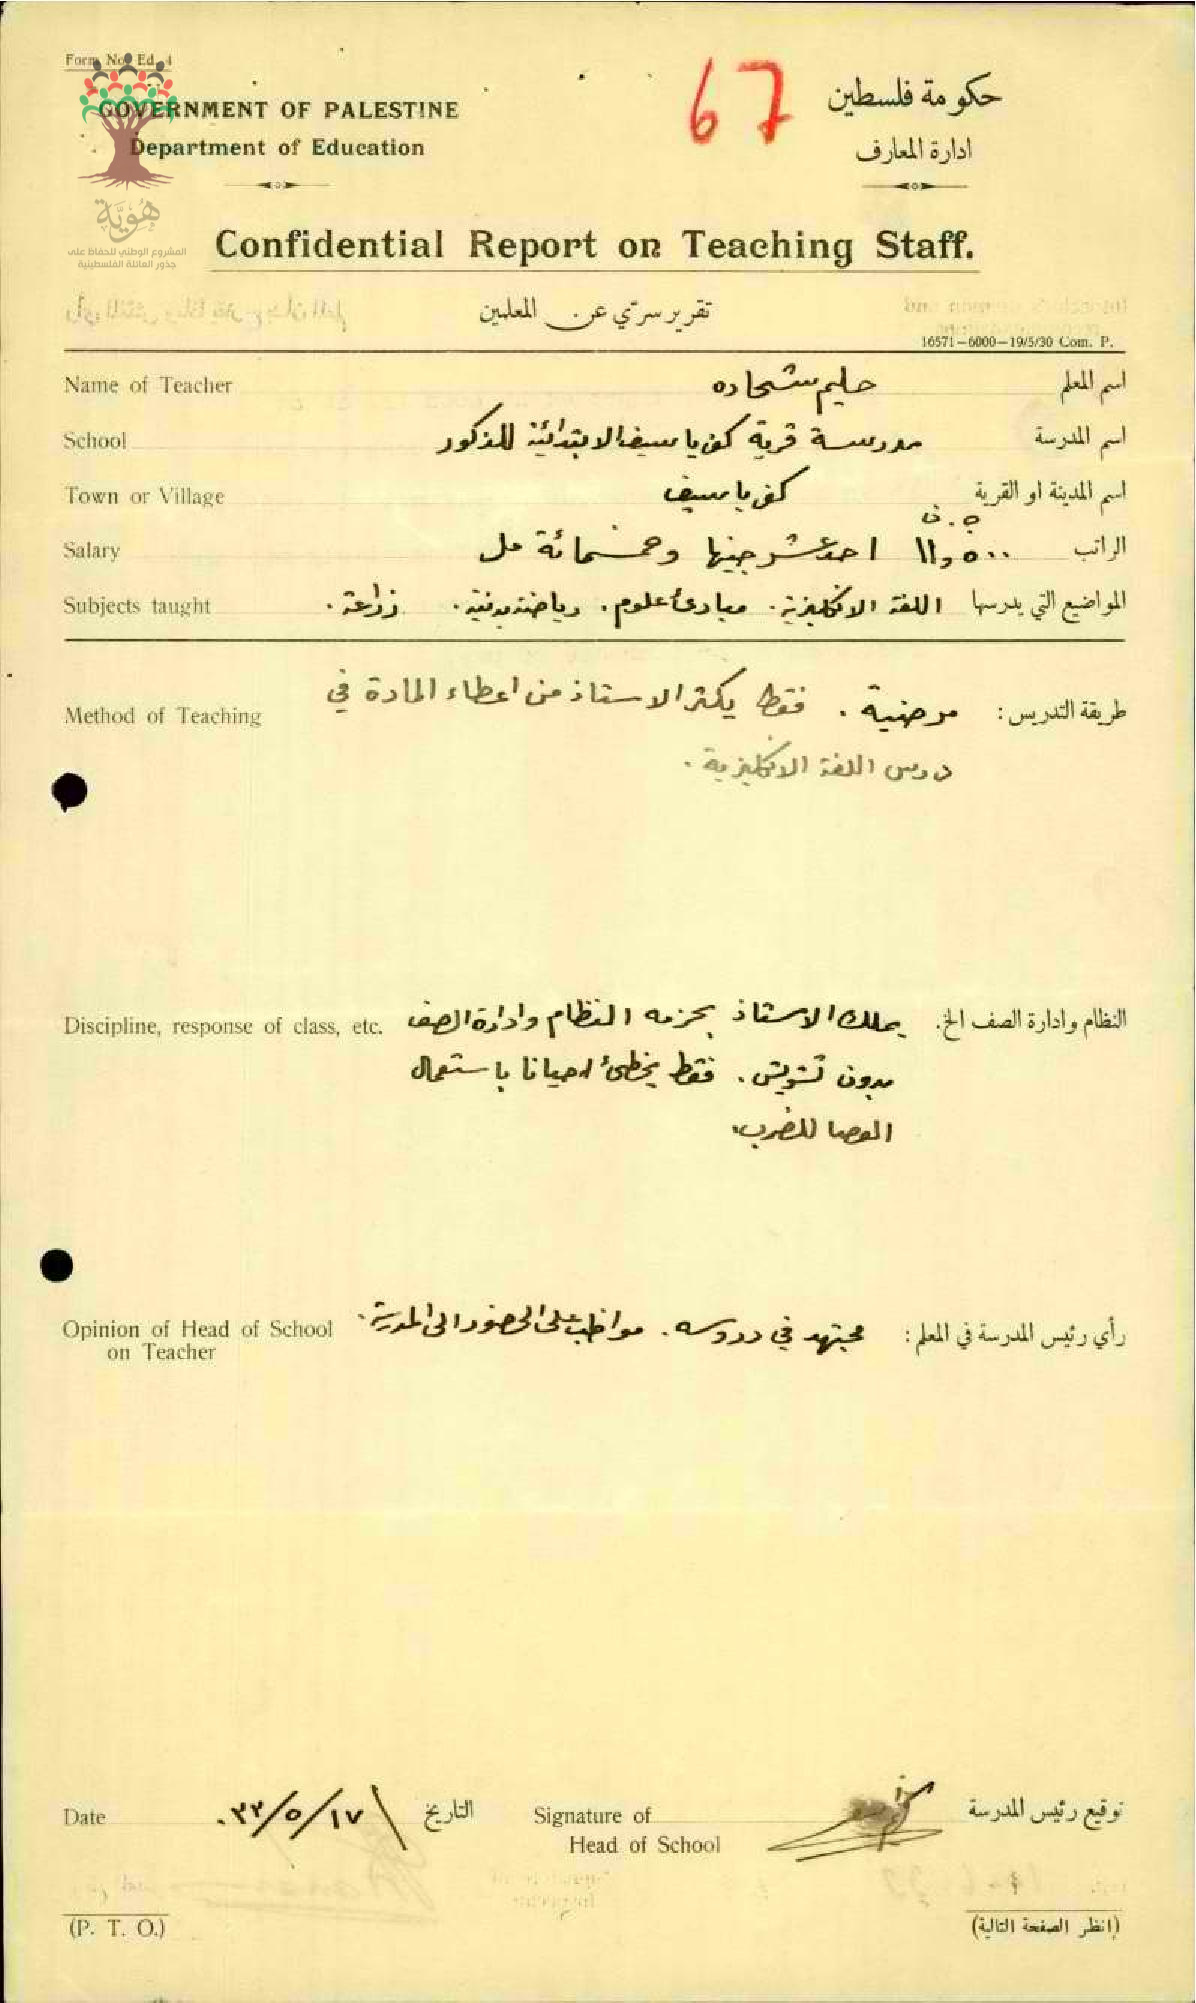 Form No. Ed. 4
GOVERNMENT OF PALESTINE
Department of Education
67
حكومة فلسطين
ادارة المعارف
هُوِيَّة
المشروع الوطني للحفاظ على
جذور العائلة الفلسطينية
Confidential Report on Teaching Staff.
تقرير سرّي عن المعلمين
16571—6000—19/5/30 Com. P.
Name of Teacher حليم شحاده اسم المعلم
School مدرسة قرية كفرياسيف الابتدائية للذكور اسم المدرسة
Town or Village كفرياسيف اسم المدينة او القرية
ج. ف
Salary ١١,٥٠٠ احد عشر جنيها وخمسمائة مل الراتب
Subjects taught اللغة الانكليزية. مبادئ علوم. رياضة بدنية. زراعة. المواضيع التي يدرسها
Method of Teaching مرضية. فقط يكثر الاستاذ من اعطاء المادة في طريقة التدريس:
دروس اللغة الانكليزية.
Discipline, response of class, etc. يملك الاستاذ بحزمه النظام وادارة الصف النظام وادارة الصف الخ.
بدون تشويش. فقط يخطئ احيانا باستعمال
العصا للضرب.
Opinion of Head of School مجتهد في دروسه. مواظب على الحضور الى المدرسة. رأي رئيس المدرسة في المعلم:
on Teacher
Date ١٧/٥/٣٢. التاريخ Signature of توقيع رئيس المدرسة
Head of School
(P. T. O.) (انظر الصفحة التالية)